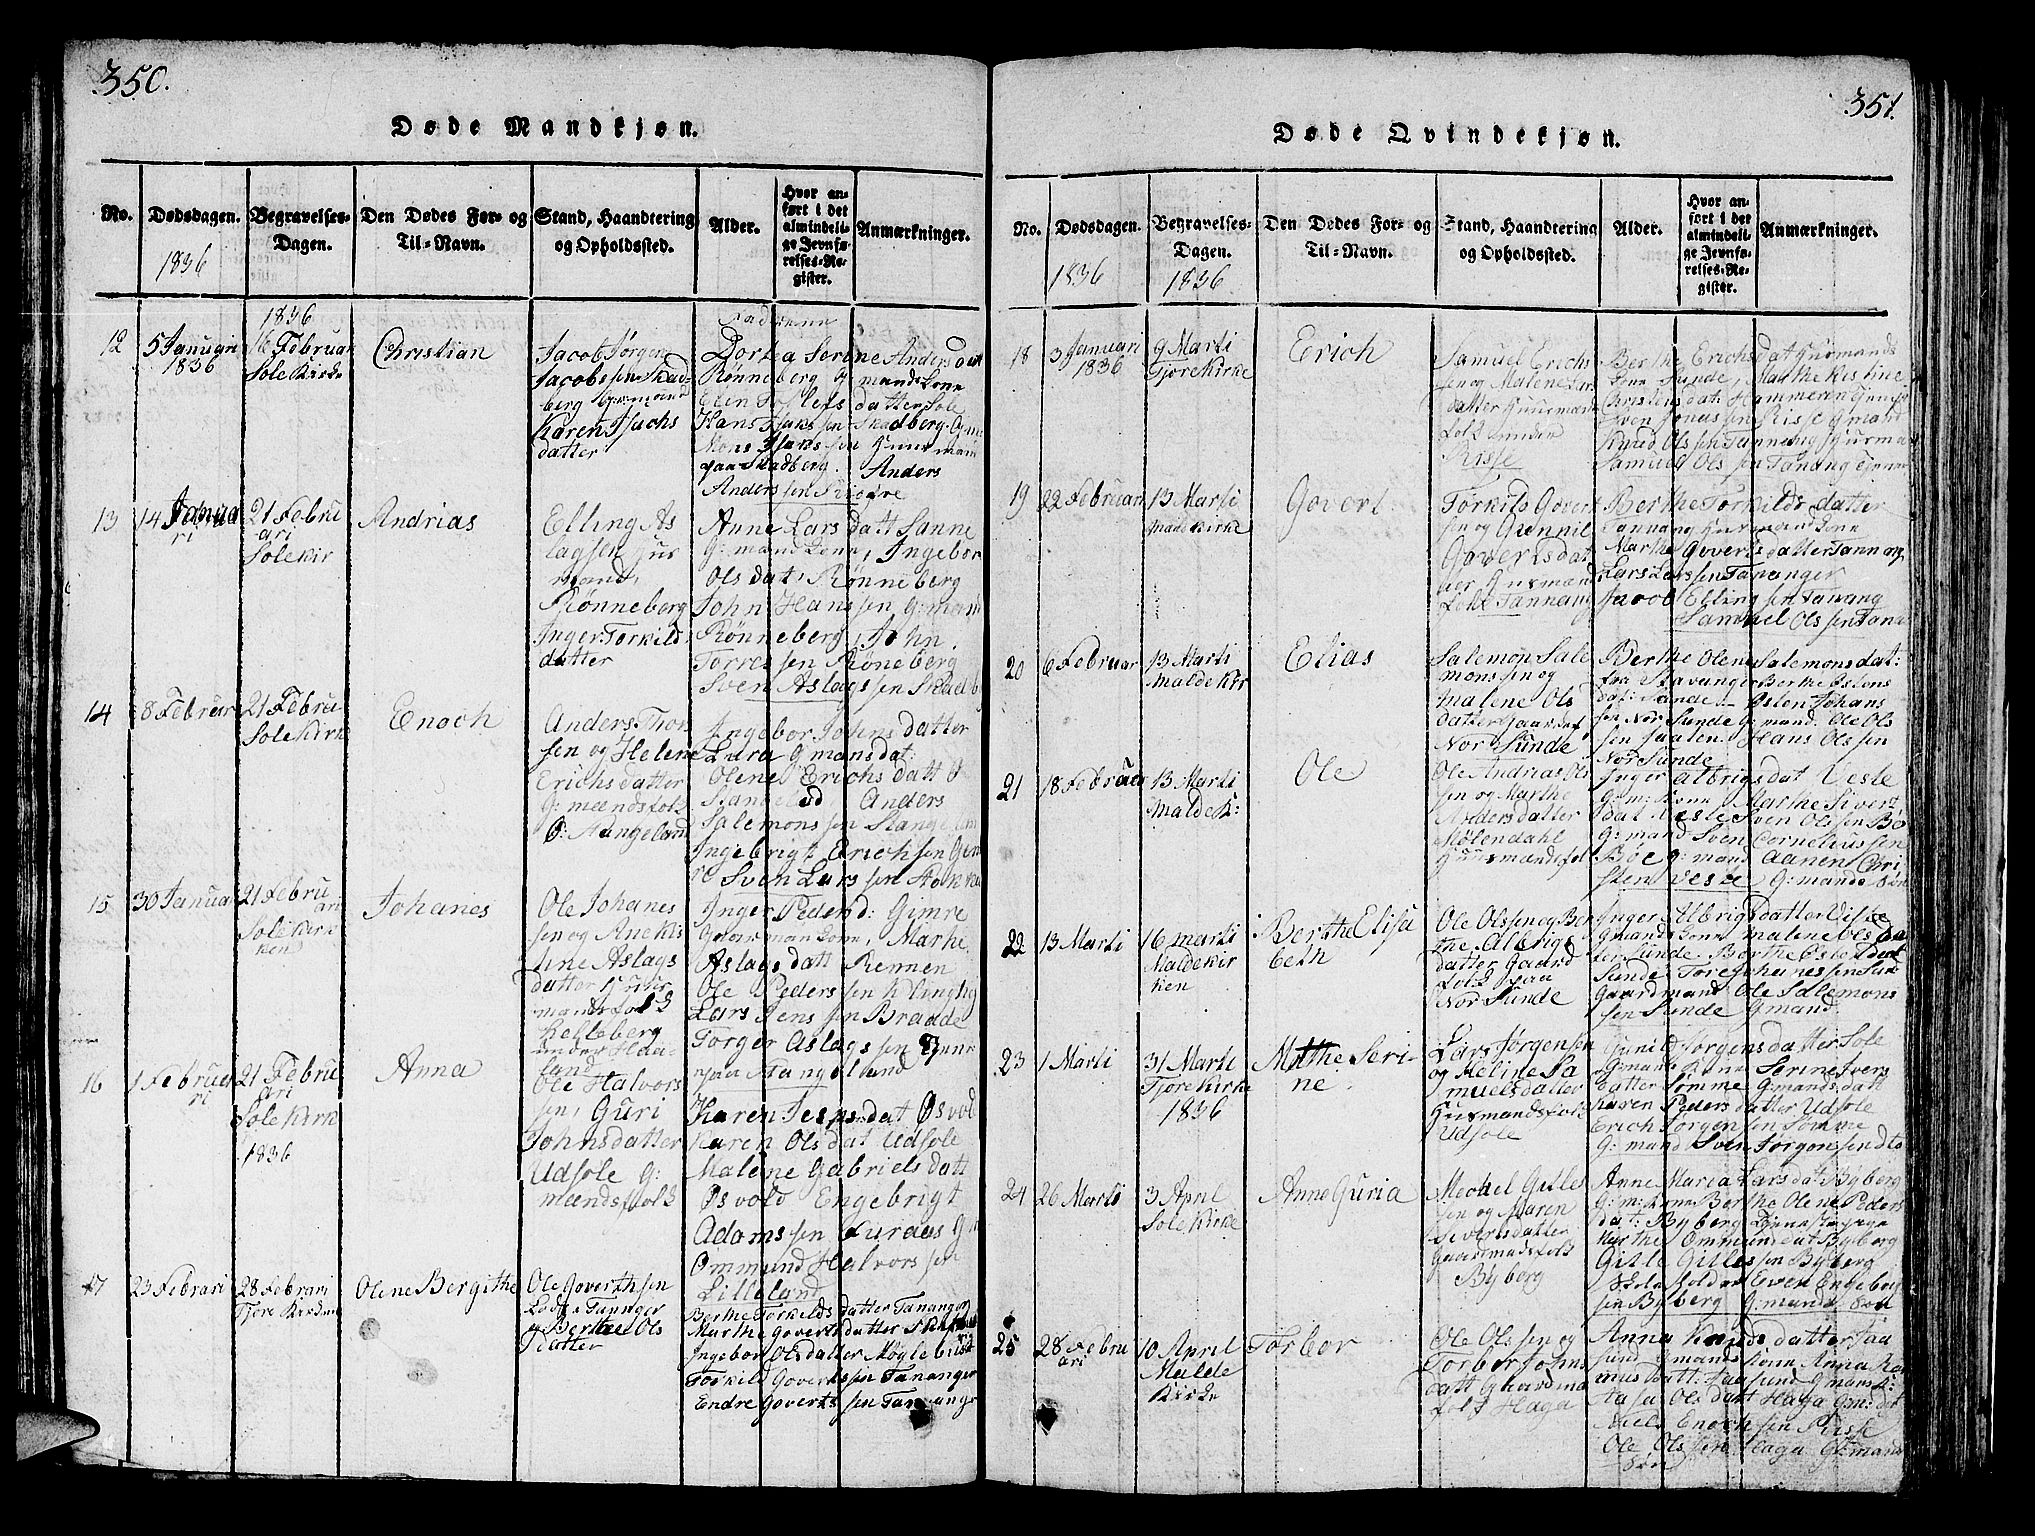 350.
Døde Mandkjøn.
No.
Dødsdagen.
1836
Begravelses-
Dagen.
Den Dødes For- og
Til-Navn.
Stand, Haandtering
og Opholdssted.
Alder.
Hvor an-
ført i det
almindeli-
ge Jevnfø-
relses-Re-
gister.
Anmærkninger.
12
5 Januari
1836
1836
16 Februar
Sole Kirke
Christian
Jacob Jørgen
Jacobssen Skad-
berg
Karen Isachs
datter
Fadderne
Dortea Serine Anders datt
Rønneberg
Elen datter Sole
Hans Isaks sen Skadberg
Mons Isaks sen
paa Skadberg. Anders
Anders sen
13
14 Janua
ri
21 Febru
ari
Sole Kir
Andrias
Elling As
lagsen Hus
mand,
Rønneberg
Inger Torkild
datter
Anne Lars datt Sanne
G: mand Kone, Ingebor
Ols dat, Rønneberg
John Hans sen G: man
Rønneberg, John
Torres sen Røneberg
Sven Aslags sen Skadb
14
8 Februar
21 Febru
Sole Kirk
Enoch
Anders Thor
sen og Helene
Erichs datter
G: mændsfolk
Ingebor Johns datter
Lura G mans dat:
Olene Erichs datt
Stangeland, Anders
Salemons sen Stangelan
Ingebrigt Erichsen
Sven Lars sen
15
30 Januar
21 Febru
ari
Sole Kir
ken
Johanes
Ole Johanes
sen og Ane Kis
tine Aslags
datter
mandsfolk
Kelleberg
under Haa-
land
Inger Peders d: Gimre
Gaar man Kone, Marhe
Aslags datt Rennen
Ole Peders sen
Lars Jens sen Braade
Torger Aslags sen
paa Stangeland
16
1 Februar
ri
21 Febru
ari
Sole Kirk
1836
Anna
Ole Halvors
sen, Guri
Johnsdatter
Udsole G:
mændsfolk
Karen Jesps dat Øsvold
Karen Ols dat Udsole
Malene Gabriels datt
Øsvold Engebrigt
Adams sen
Ommund Halvors sen
Lilleland
17
23 Febrari
28 Febrari
Tjore
Olene Bergithe
Ole Goverthsen
Tananger
og Berthe Ols
datter
Berthe Torkilds datter Tananger
Marthe Goverts datter
Ingebor Ols datter Møglebust
Torkild Goverts sen Tananger
Endre Goverts sen Tananger
351.
Døde Qvindekjøn.
No.
Dødsdagen.
1836
Begravelses-
Dagen.
1836
Den Dødes For- og
Til-Navn.
Stand, Haandtering
og Opholdssted.
Alder.
Hvor an-
ført i det
almindeli-
ge Jevnfø-
relses-Re-
gister.
Anmærkninger.
18
3 Januari
1836
9 Marti
Tjore Kirke
Erich
Samuel Erichs
sen og Malene Lar
datter Huusmand
folk under
Risse
Berthe Erichs dat Huusmands
Kone Sunde, Marthe Kistine
Christens dat: Hammeren
Sven Jonas sen Risse G mand
Knud Ols sen Tannang Husman
Samuel Ols sen Tanang
19
22 Februari
13 Marti
Malde Kirke
Govert
Torkils Govert
sen og Gunnil
Goverts dat
ter Husman
folk Tannang
Berthe Torkilds datter
Tannang Husmand Kone
Marthe Goverts datter Tannang
Lars Lars sen Tananger
Jacob Elling sen Tanang
Samuel Ols sen Tana
20
6 Februar
13 Marti
Malde Kir
Elias
Salemon Sale
mons sen og
Malene Ols
datter Gaardsf
Nor Sunde
Berthe Olene Salemons dat:
fra Stavanger Berthe Østens
dat: Sunde Østen Johans
sen Nor Sunde G: mand: Ole Ols
sen Jaaten Hans Ols sen
Nor Sunde
21
18 Februar
13 Marti
Malde K:
Ole
Ole Andrias Ols
sen og Marthe
Anders datter
Mølendahl
Huusmandsfol
Inger Albrigs dat Veste
G: m: Kone Marthe Sivert
dat Veste Sven Ols sen Bø
G: mand Sven Cornelius sen
Bøe G: mand Aanen Chri
sten Veste G: mands Søn
22
13 Marti
16 Marti
Malde Kir
ken
Berthe Elisa
beth
Ole Olssen og Ber
the Albrigs
datter Gaard
folk paa
Nor Sunde
Inger Albrigs datter Viste
G mands Kone Malene Ols da
ter Sunde Berthe
Sunde Tore Johanes sen Sun
Gaardmand Ole Salemons
sen Sunde G mand
23
1 Marti
31 Marti
Tjore Kirke
1836
Mathe Seri-
ne
Lars Jørgensen
og Heline Sa
muels datter
Husmandsfolk
Udsole
Gunild Jørgens datter Sole
G: mands Kone Serine Ivers
datter Sømme G: mands datt
Karen Peders datter Udsole
Erich Jørgen sen Sømme
G: mand Sven Jørgensen
24
26 Marti
3 April
Sole Kirke
Anne Guria
Mechel Gitles
sen og Maren
Siverts datter
Gaardmandsfolk
Byberg
Anne Maria Lars dat Byberg
G: m: Kone Berthe Olene Peders
dat: Byberg
Marthe Ommunds dat Byberg
Gitle Gilles sen Byberg
Even Engebre
sen Byberg G: mands Søn
25
28 Febru
ari
10 April
Malde
Kirke
Torbor
Ole Ols sen og
Torbor Johns
datt Gaardma
folk Haga
Anna Knuds datter Jaa
sund G mands Kone Anna Ras
mus Datt: Jaasund G mans K:
Ols datt Haga G m:
Niels Enoch sen Risse
Ole Ols sen Haga G: mands
Søn